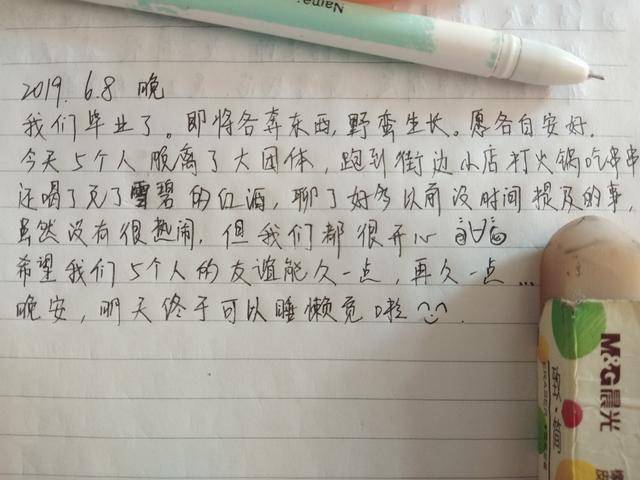 Name:
2019. 6.8 晚
我们毕业了。即将各奔东西,野蛮生长。愿各自安好.
今天5个人脱离了大团体,跑到街边小店打火锅吃串串
还喝了兑了雪碧的红酒,聊了好多以前没时间提及的事,
虽然没有很热闹,但我们都很开心
希望我们5个人的友谊能久一点,再久一点...
晚安,明天终于可以睡懒觉啦
M&G晨光